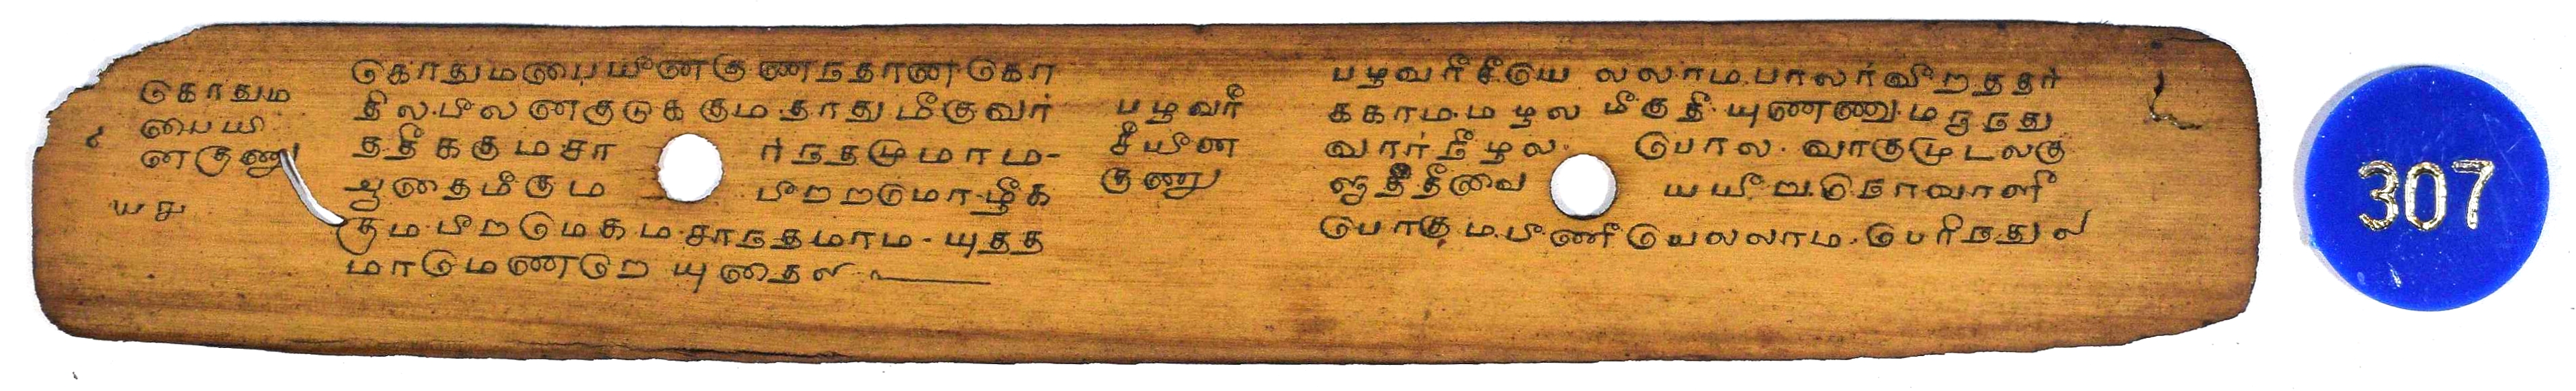 கொதும
பையி
னகுண
யசு
கொதுமபையினகுணநதானகொ
தில.பிலனகுடுககும.தாதுமிகுவர்
ததிககுமசா ர்நதமுமாம-
ஆதைமிகும பிறறடுமா.ழிக
கும.பிறமெகம.சாநதமாம-யுதத
மாமெணடுற யுதைல
பழவரி
சியின
குண
பழவரிசியெ லலாம.பாலர்விறததர்
ககாம.மழல மிகுதி.யுணணு.மநநது
வார்நிழல. பொல. வாகுமுடலகு
பொகும.பிணியெலலாம.பெரிநதுல
307